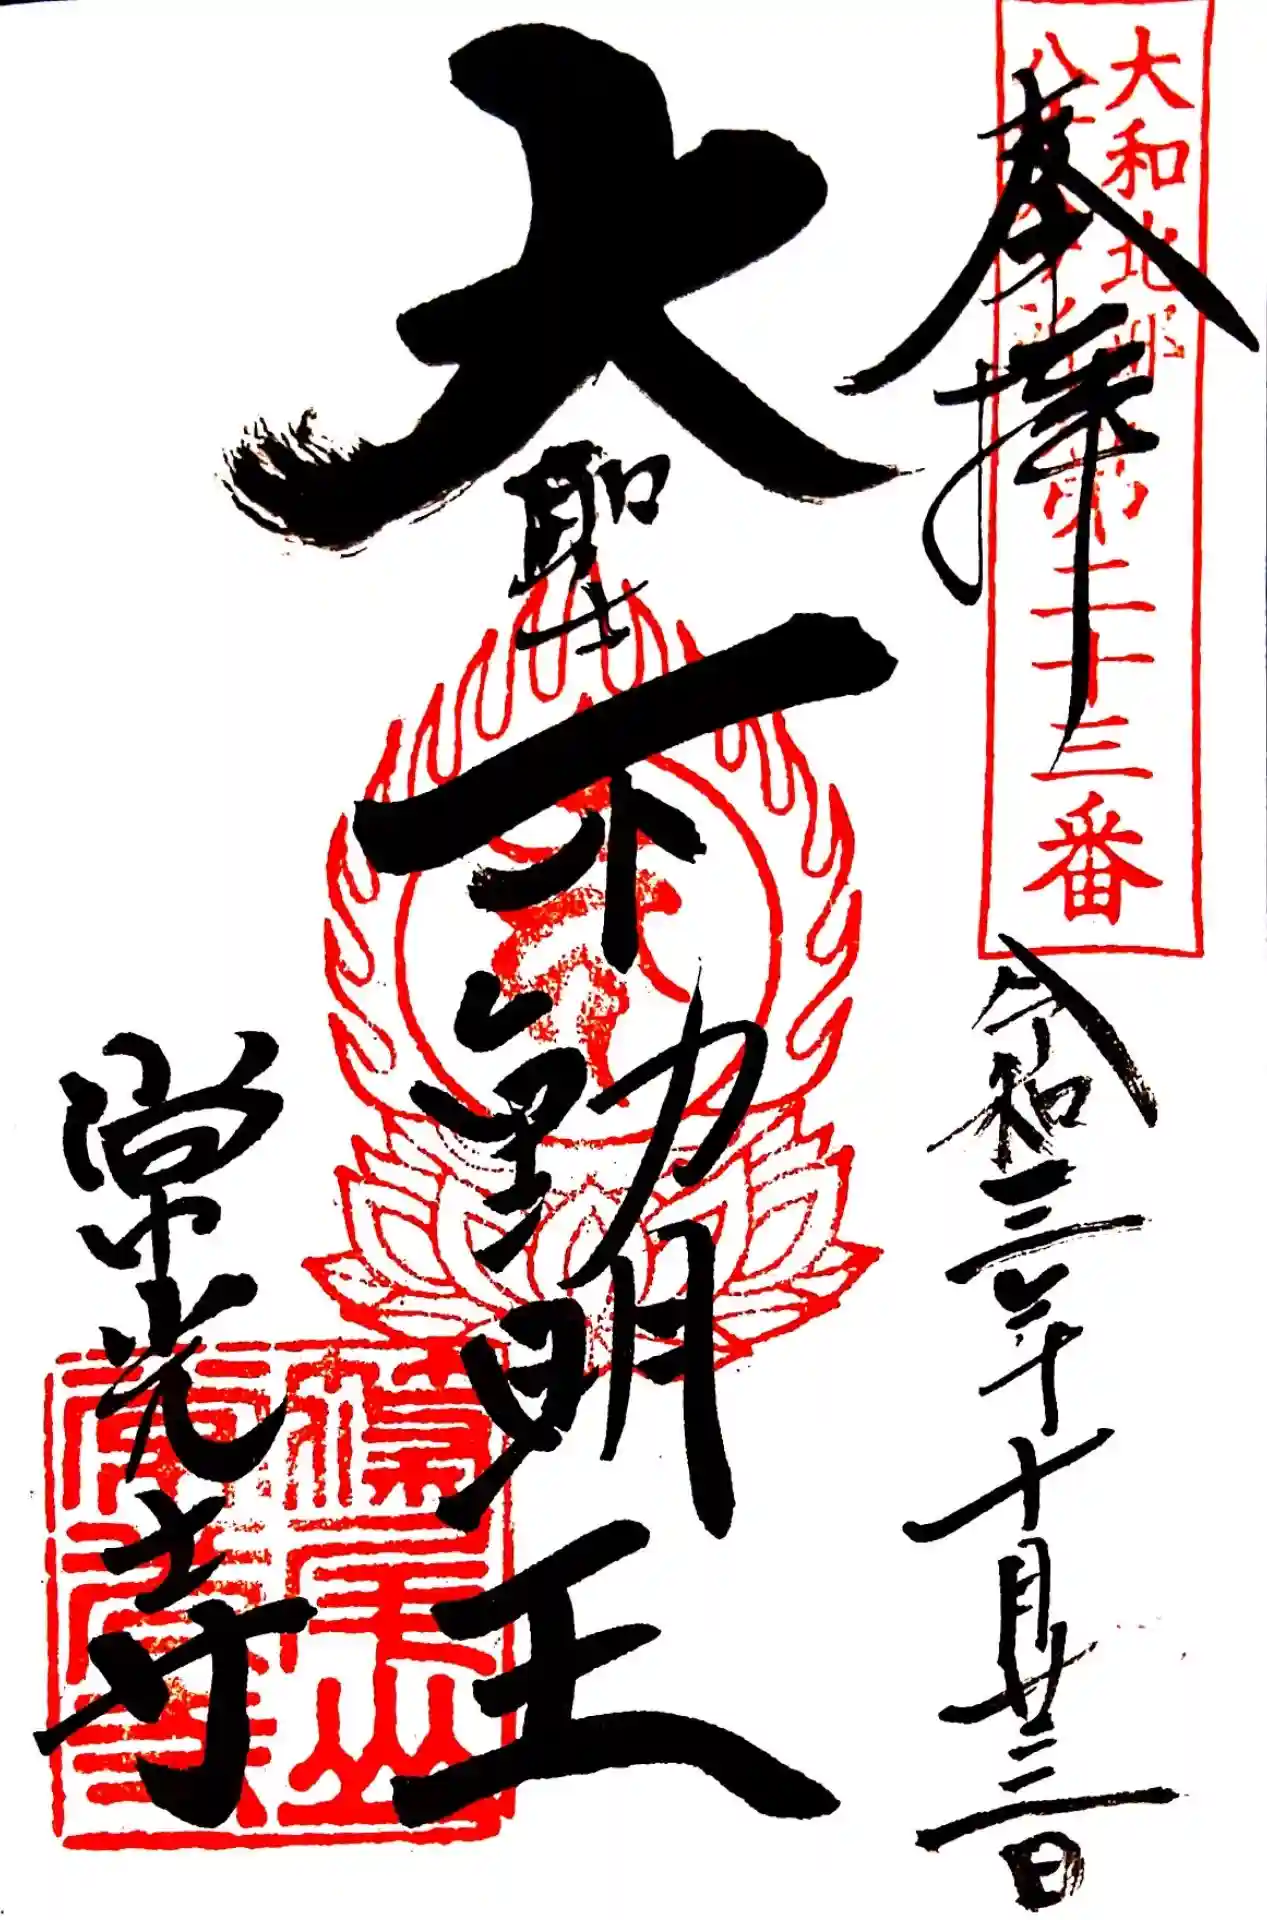 大和北部
八十八ヶ所
第二十三番
奉拝
令和三年十月廿三日
大聖不動明王
常光寺
尾山
常光寺